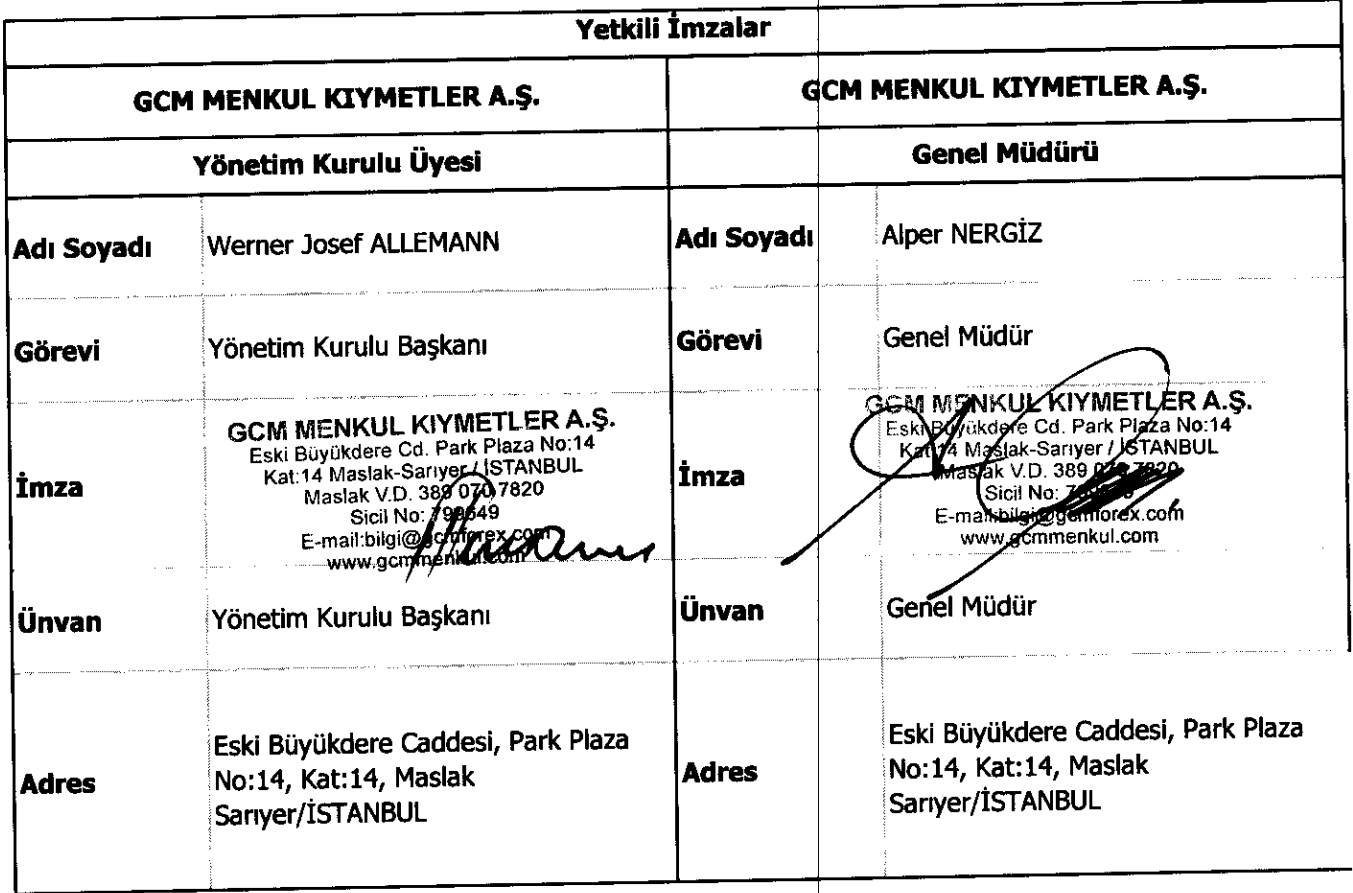 Yetkili İmzalar
GCM MENKUL KIYMETLER A.Ş.
GCM MENKUL KIYMETLER A.Ş.
Yönetim Kurulu Üyesi
Genel Müdürü
Adı Soyadı
Werner Josef ALLEMANN
Adı Soyadı
Alper NERGİZ
Görevi
Yönetim Kurulu Başkanı
Görevi
Genel Müdür
İmza
GCM MENKUL KIYMETLER A.Ş.
Eski Büyükdere Cd. Park Plaza No:14
Kat:14 Maslak-Sarıyer / İSTANBUL
Maslak V.D. 389 070 7820
Sicil No: 799649
E-mail:bilgi@gcmforex.com
www.gcmmenkul.com
İmza
GCM MENKUL KIYMETLER A.Ş.
Eski Büyükdere Cd. Park Plaza No:14
Kat:14 Maslak-Sarıyer / İSTANBUL
Maslak V.D. 389 070 7820
Sicil No:
E-mail:bilgi@gcmforex.com
www.gcmmenkul.com
Ünvan
Yönetim Kurulu Başkanı
Ünvan
Genel Müdür
Adres
Eski Büyükdere Caddesi, Park Plaza
No:14, Kat:14, Maslak
Sarıyer/İSTANBUL
Adres
Eski Büyükdere Caddesi, Park Plaza
No:14, Kat:14, Maslak
Sarıyer/İSTANBUL